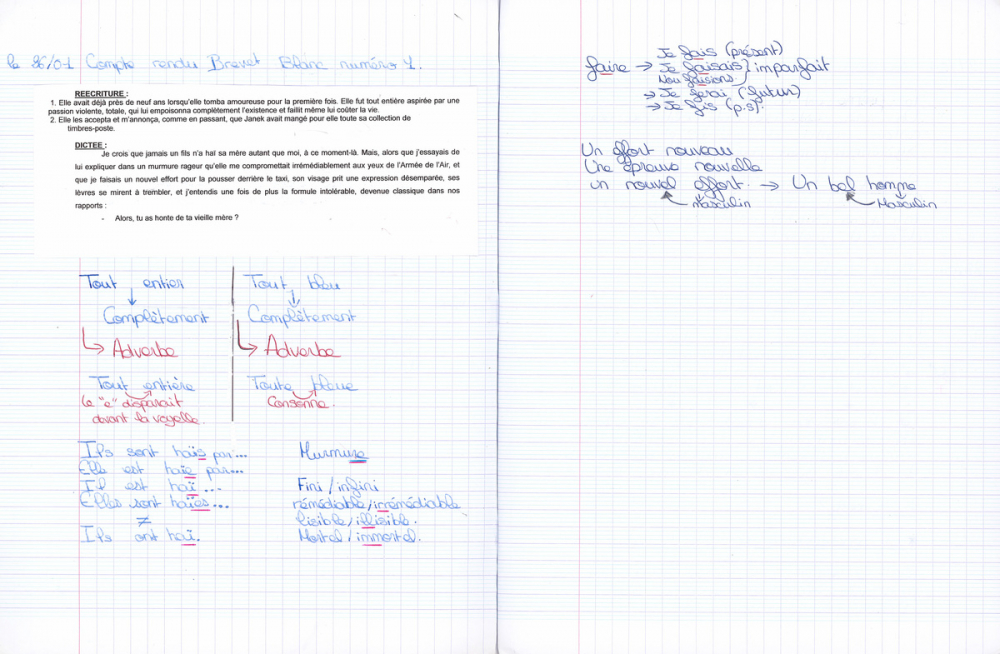 le 26/01 Compte rendu Brevet Blanc numéro 1.
REECRITURE :
1. Elle avait déjà près de neuf ans lorsqu'elle tomba amoureuse pour la première fois. Elle fut tout entière aspirée par une
passion violente, totale, qui lui empoisonna complètement l'existence et faillit même lui coûter la vie.
2. Elle les accepta et m'annonça, comme en passant, que Janek avait mangé pour elle toute sa collection de
timbres-poste.
DICTEE :
Je crois que jamais un fils n'a haï sa mère autant que moi, à ce moment-là. Mais, alors que j'essayais de
lui expliquer dans un murmure rageur qu'elle me compromettait irrémédiablement aux yeux de l'Armée de l'Air, et
que je faisais un nouvel effort pour la pousser derrière le taxi, son visage prit une expression désemparée, ses
lèvres se mirent à trembler, et j'entendis une fois de plus la formule intolérable, devenue classique dans nos
rapports :
- Alors, tu as honte de ta vieille mère ?
Tout entier
Complètement
Adverbe
Tout entière
le "e" disparait
devant la voyelle.
Tout bleu
Complètement
Adverbe
Toute bleue
Consonne.
Ils sont haïs par...
Elle est haïe par...
Il est haï ...
Elles sont haïes...
≠
Ils ont haï.
Murmure
Fini / infini
rémédiable / irrémédiable
lisible / illisible.
Mortel / immortel.
Je fais (présent)
faire → Je faisais } imparfait
Nou faisions
→ Je ferai (futur)
→ Je fis (p.s).
Un effort nouveau
Une épreuve nouvelle
un nouvel effort. → Un bel homme
masculin Masculin